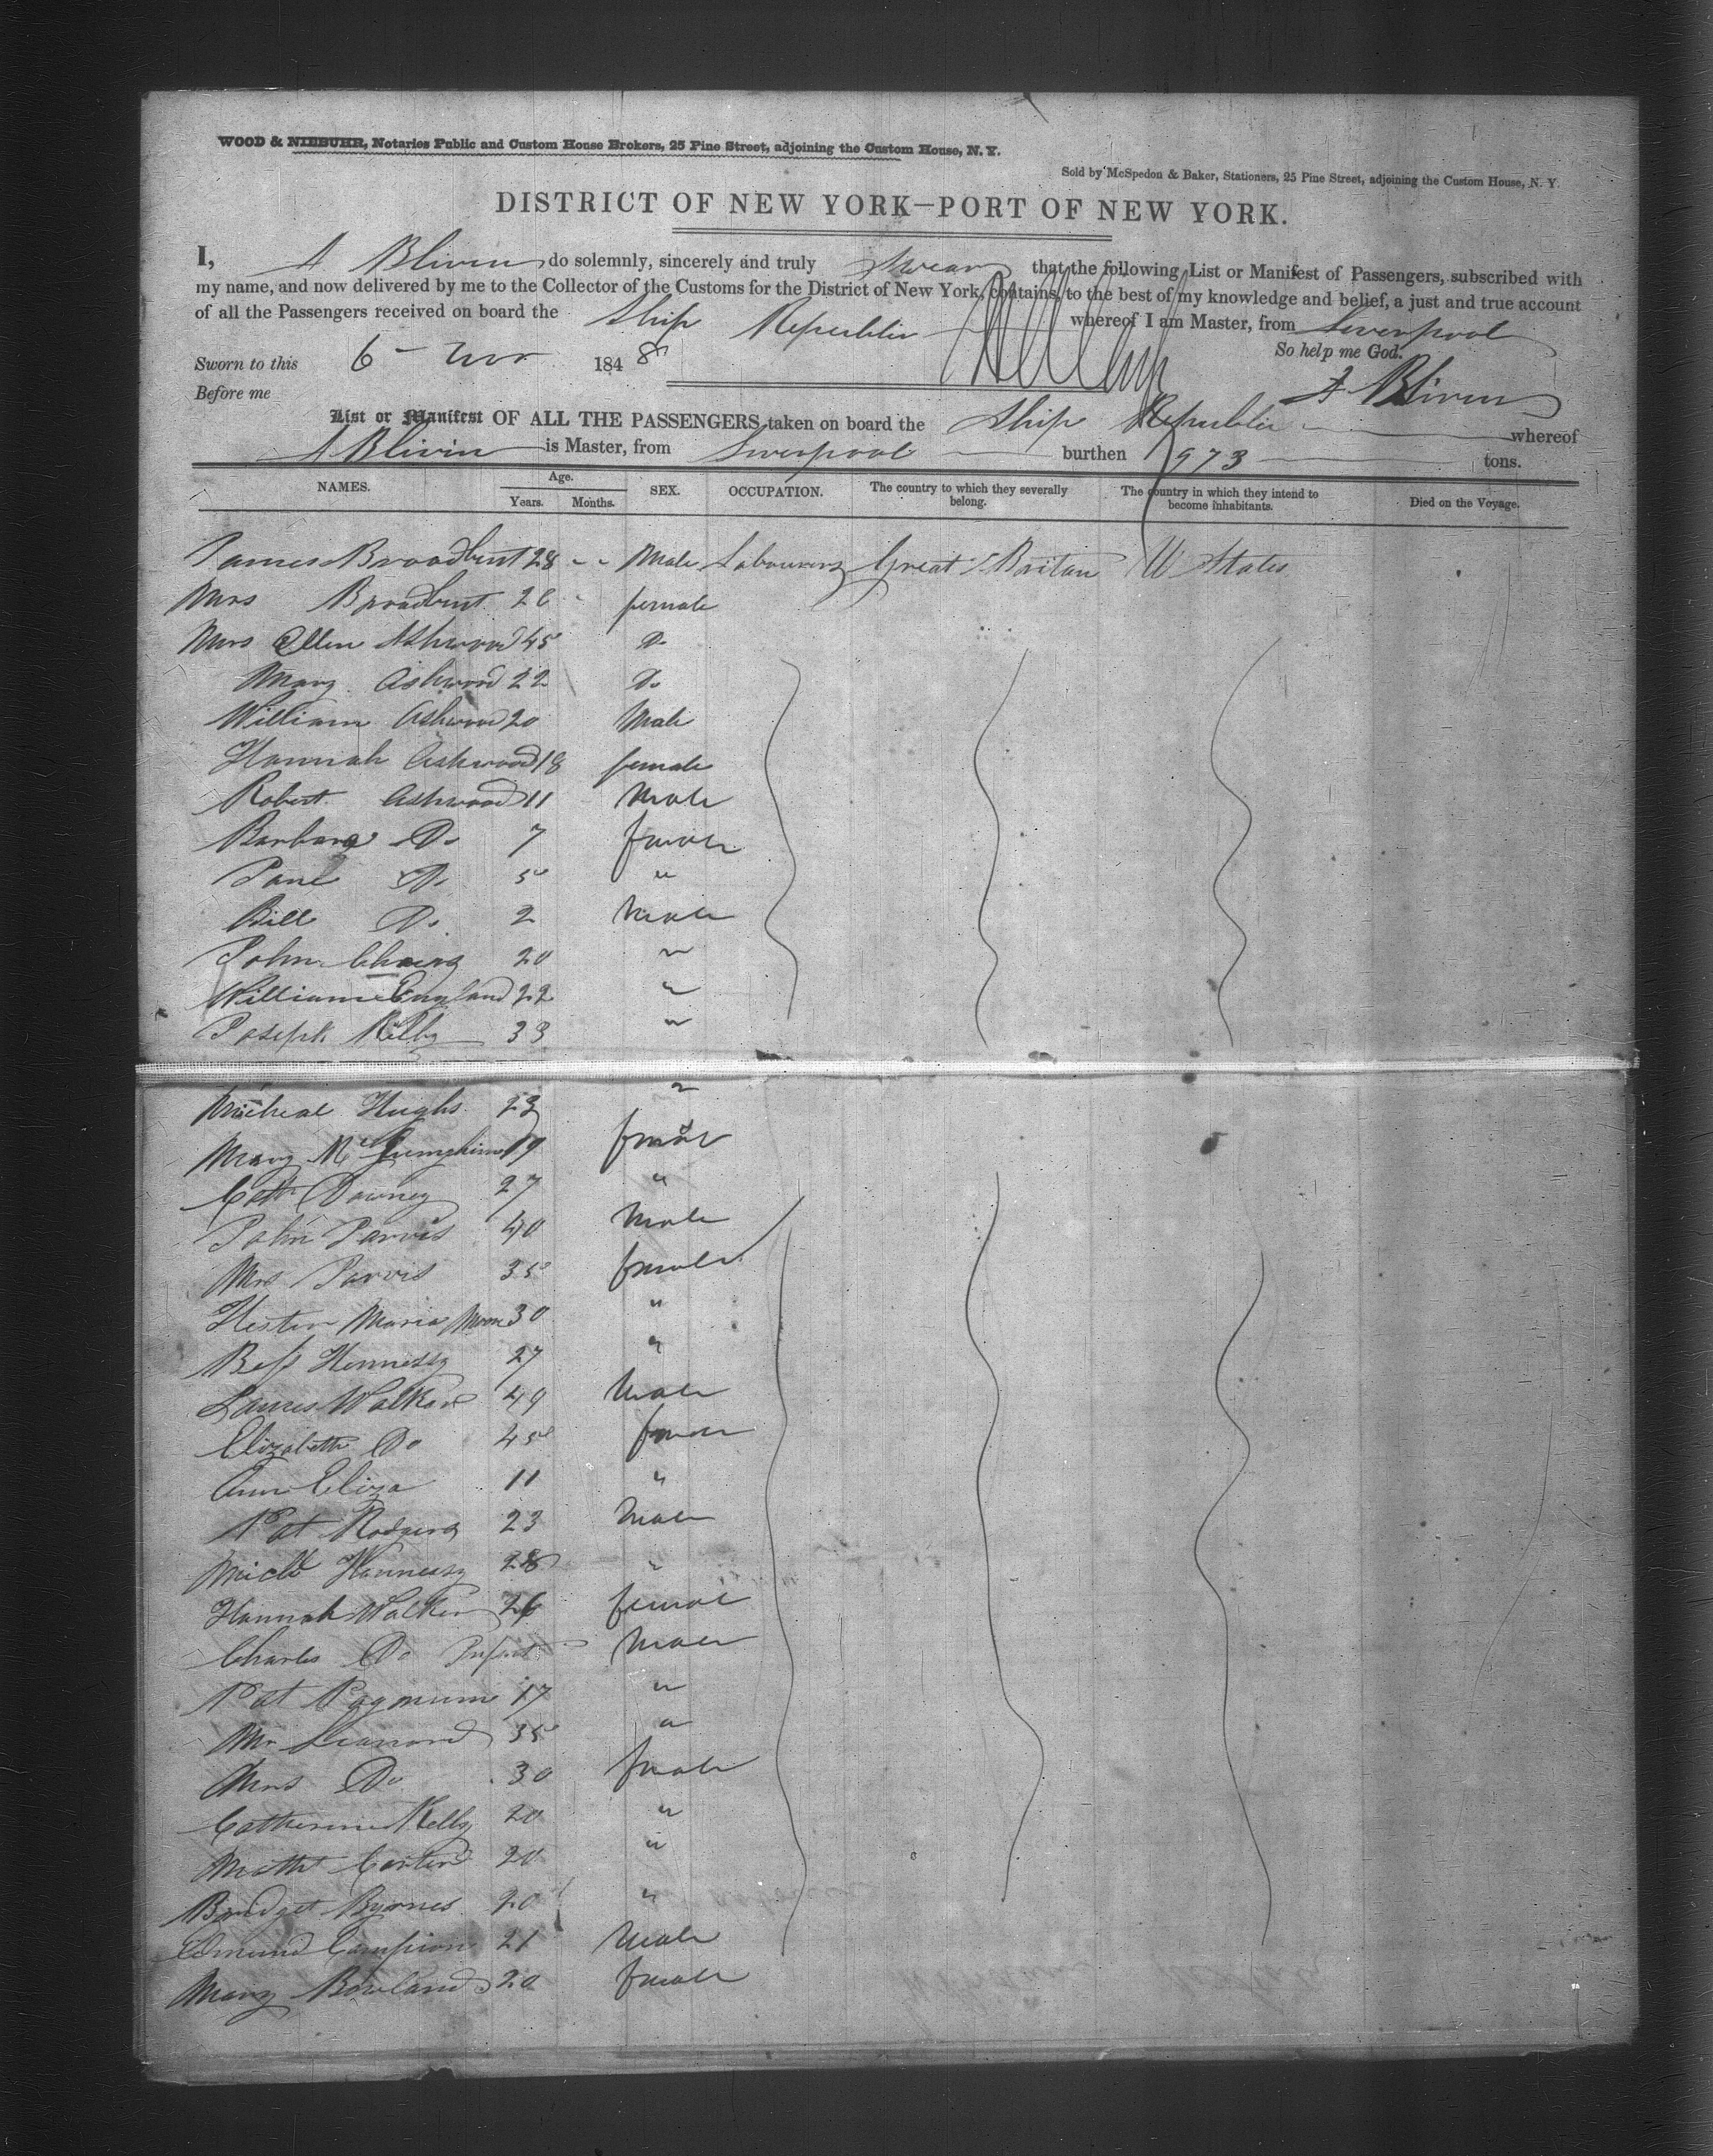 WOOD & NIEBUHR, Notaries Public and Custom House Brokers, 25 Pine Street, adjoining the Custom House, N. Y.
Sold by McSpedon & Baker, Stationers, 25 Pine Street, adjoining the Custom House, N. Y.
DISTRICT OF NEW YORK—PORT OF NEW YORK.
I, A Bliven do solemnly, sincerely and truly Swear that the following List or Manifest of Passengers, subscribed with
my name, and now delivered by me to the Collector of the Customs for the District of New York, contains, to the best of my knowledge and belief, a just and true account
of all the Passengers received on board the Ship Republic whereof I am Master, from Liverpool
So help me God.
Sworn to this 6 Nov 1848
Before me
A Bliven
List or Manifest OF ALL THE PASSENGERS taken on board the Ship Republic whereof
A Bliven is Master, from Liverpool burthen 973 tons.
NAMES. Age. Years. Months. SEX. OCCUPATION. The country to which they severally belong. The country in which they intend to become inhabitants. Died on the Voyage.
James Broadbent 28 - - Male Labourers Great Britan U States
Mrs Broadbent 26 female
Mrs Ellen Ashwood 45 Do
Mary Ashwood 22 Do
William Ashwood 20 Male
Hannah Ashwood 18 female
Robert Ashwood 11 Male
Barbara Do 7 female
Jane Do 5 "
Bill Do 2 Male
John 20 "
William England 22 "
Joseph Kelly 33 "
Micheal Hughs 23 "
Mary Mc 19 female
Cath Downey 27 "
John Jarvis 40 Male
Mrs Jarvis 35 female
Hester Maria Moon 30 "
Bess Hennessy 27 "
James Walker 49 Male
Elizabeth Do 45 female
Ann Eliza 11 "
Pat Rodgers 23 Male
Michl Hennessy 28 "
Hannah Walker 26 female
Charles Do Infant - Male
Pat 17 "
Mr Leanord 35 "
Mrs Do 30 female
Catherine Kelly 20 "
20 "
Bridget Byrnes 20 "
Edmund Campion 21 Male
Mary Bowland 20 female